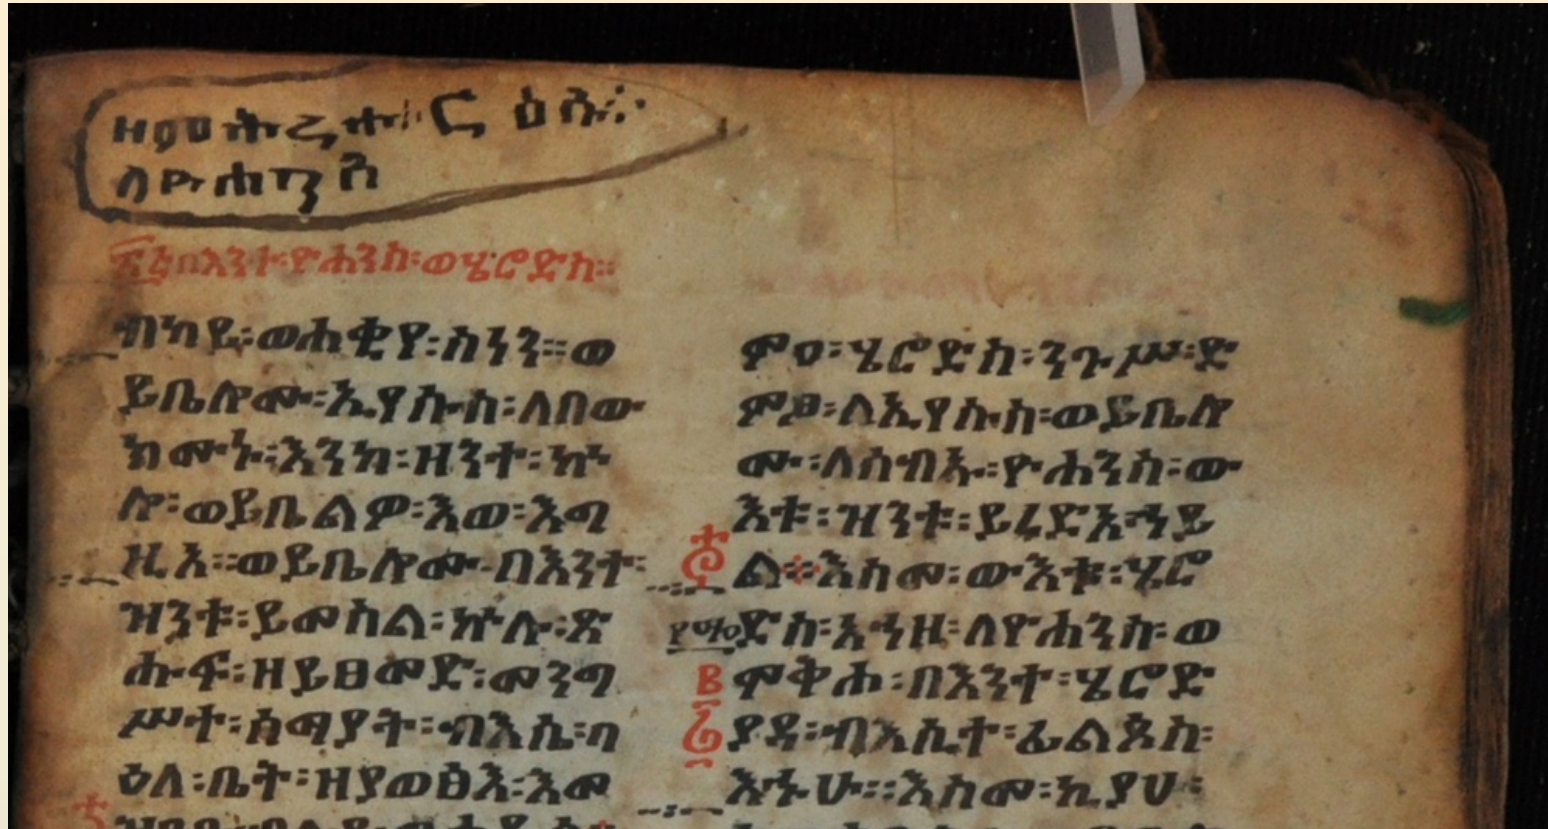 ለዮሐንስ
በእንተ፡ዮሐንስ፡ወሄሮድስ።
ብካይ፡ወሐቂየ፡ስነን።ወ
ይቤሎሙ፡ኢየሱስ፡ለበው
ክሙኑ፡እንከ፡ዘንተ፡ኵ
ሎ፡ወይቤልዎ፡እወ፡እግ
ዚአ።ወይቤሎሙ፡በእንተ፡
ዝንቱ፡ይመስል፡ኵሉ፡ጸ
ሐፍ፡ዘይፀመድ፡መንግ
ሥተ፡ሰማያት፡ብእሴ፡ባ
ዕለ፡ቤት፡ዘያወፅእ፡እመ
ምዐ፡ሄሮድስ፡ንጉሥ፡ድ
ምፀ፡ለኢየሱስ፡ወይቤሎ
ሙ፡ለሰብኡ፡ዮሐንስ፡ው
እቱ፡ዝንቱ፡ይረድእኀይ
ል።እስመ፡ውእቱ፡ሄሮ
ድስ፡አኀዘ፡ለዮሐንስ፡ወ
ሞቅሐ፡በእንተ፡ሄሮድ
ያዳ፡ብእሲተ፡ፊልጶስ፡
እኁሁ።እስመ፡ኪያሃ፡